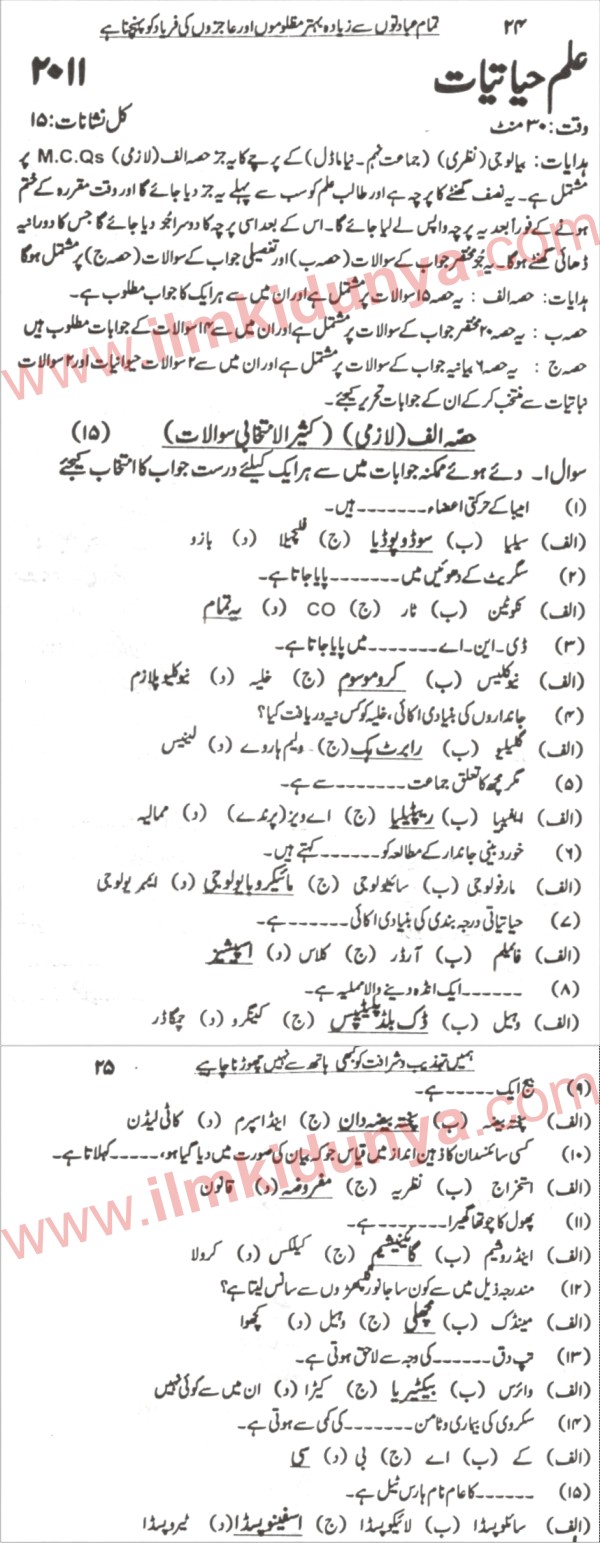 ۲۴ تمام عبادتوں سے زیادہ بہتر مظلوموں اور عاجزوں کی فریاد کو پہنچنا ہے
علم حیاتیات ۲۰۱۱
وقت: ۳۰ منٹ کل نشانات: ۱۵
ہدایات: بیالوجی (نظری) (جماعت نہم۔ نیا ماڈل) کے پرچے کا یہ جز حصہ الف (لازمی) M.C.Qs پر
مشتمل ہے۔ یہ نصف گھنٹے کا پرچہ ہے اور طالب علم کو سب سے پہلے یہ جز دیا جائے گا اور وقت مقررہ کے ختم
ہونے کے فوراً بعد یہ پرچہ واپس لے لیا جائے گا۔ اس کے بعد اسی پرچہ کا دوسرا جُز دیا جائے گا جس کا دورانیہ
ڈھائی گھنٹے ہوگا۔ یہ جو مختصر جواب کے سوالات (حصہ ب) اور تفصیلی جواب کے سوالات (حصہ ج) پر مشتمل ہوگا
ہدایات: حصہ الف : یہ حصہ ۱۵ سوالات پر مشتمل ہے اور ان میں سے ہر ایک کا جواب مطلوب ہے۔
حصہ ب : یہ حصہ ۲۰ مختصر جواب کے سوالات پر مشتمل ہے اور ان میں سے ۱۴ سوالات کے جوابات مطلوب ہیں
حصہ ج : یہ حصہ ۶ بیانیہ جواب کے سوالات پر مشتمل ہے اور ان میں سے ۲ سوالات حیوانیات اور ۲ سوالات
نباتیات سے منتخب کر کے ان کے جوابات تحریر کیجئے۔
حصّہ الف (لازمی) (کثیر الانتخابی سوالات) (۱۵)
سوال ۱۔ دئے ہوئے ممکنہ جوابات میں سے ہر ایک کیلئے درست جواب کا انتخاب کیجئے
(۱) امیبا کے حرکتی اعضاء ۔۔۔۔۔۔۔ ہیں۔
(الف) سیلیا (ب) سوڈوپوڈیا (ج) فلجیلا (د) بازو
(۲) سگریٹ کے دھوئیں میں ۔۔۔۔۔۔۔ پایا جاتا ہے۔
(الف) نکوٹین (ب) ٹار (ج) CO (د) یہ تمام
(۳) ڈی۔ این۔ اے ۔۔۔۔۔۔۔ میں پایا جاتا ہے۔
(الف) نیوکلیس (ب) کروموسوم (ج) خلیہ (د) نیوکلیوپلازم
(۴) جانداروں کی بنیادی اکائی، خلیہ کو کس نیہ دریافت کیا؟
(الف) گلیلیو (ب) رابرٹ ہک (ج) ولیم ہاروے (د) لینیس
(۵) مگرمچھ کا تعلق جماعت ۔۔۔۔۔۔۔ سے ہے۔
(الف) ایمفیبیا (ب) ریپٹیلیا (ج) اے ویز (پرندے) (د) ممالیہ
(۶) خوردبینی جاندار کے مطالعہ کو ۔۔۔۔۔۔ کہتے ہیں۔
(الف) مارفولوجی (ب) سائیکولوجی (ج) مائیکروبایولوجی (د) ایمبریولوجی
(۷) حیاتیاتی درجہ بندی کی بنیادی اکائی ۔۔۔۔۔۔ ہے۔
(الف) فائیلم (ب) آرڈر (ج) کلاس (د) اسپیشیز
(۸) ۔۔۔۔۔۔ ایک انڈہ دینے والا ممیلیہ ہے۔
(الف) وہیل (ب) ڈک بلڈ پلیٹیپس (ج) کینگرو (د) چمگاڈر
ہمیں تہذیب و شرافت کو کبھی ہاتھ سے نہیں چھوڑنا چاہیے ۲۵
(۹) بیج ایک ۔۔۔۔۔ ہے۔
(الف) پختہ بیضہ (ب) پختہ بیضہ دان (ج) اینڈ اسپرم (د) کاٹی لیڈن
(۱۰) کسی سائنسدان کا ذہین انداز میں قیاس جو کہ بیان کی صورت میں دیا گیا ہو، ۔۔۔۔۔ کہلاتا ہے۔
(الف) استخراج (ب) نظریہ (ج) مفروضہ (د) قانون
(۱۱) پھول کا چوتھا گھیرا ۔۔۔۔۔۔۔ ہے۔
(الف) اینڈروشیم (ب) گائینیشیم (ج) کیلکس (د) کرولا
(۱۲) مندرجہ ذیل میں سے کون سا جانور گلپھڑوں سے سانس لیتا ہے؟
(الف) مینڈک (ب) مچھلی (ج) وہیل (د) کچھوا
(۱۳) تپ دق ۔۔۔۔۔۔ کی وجہ سے لاحق ہوتی ہے۔
(الف) وائرس (ب) بیکٹیریا (ج) کیڑا (د) ان میں سے کوئی نہیں
(۱۴) سکروی کی بیماری وٹامن ۔۔۔۔۔۔۔ کی کمی سے ہوتی ہے۔
(الف) کے (ب) اے (ج) بی (د) سی
(۱۵) ۔۔۔۔۔۔ کا عام نام ہارس ٹیل ہے۔
(الف) سائلوپسڈا (ب) لائیکوپسڈا (ج) اسفینوپسڈا (د) ٹیروپسڈا
www.ilmkidunya.com
www.ilmkidunya.com